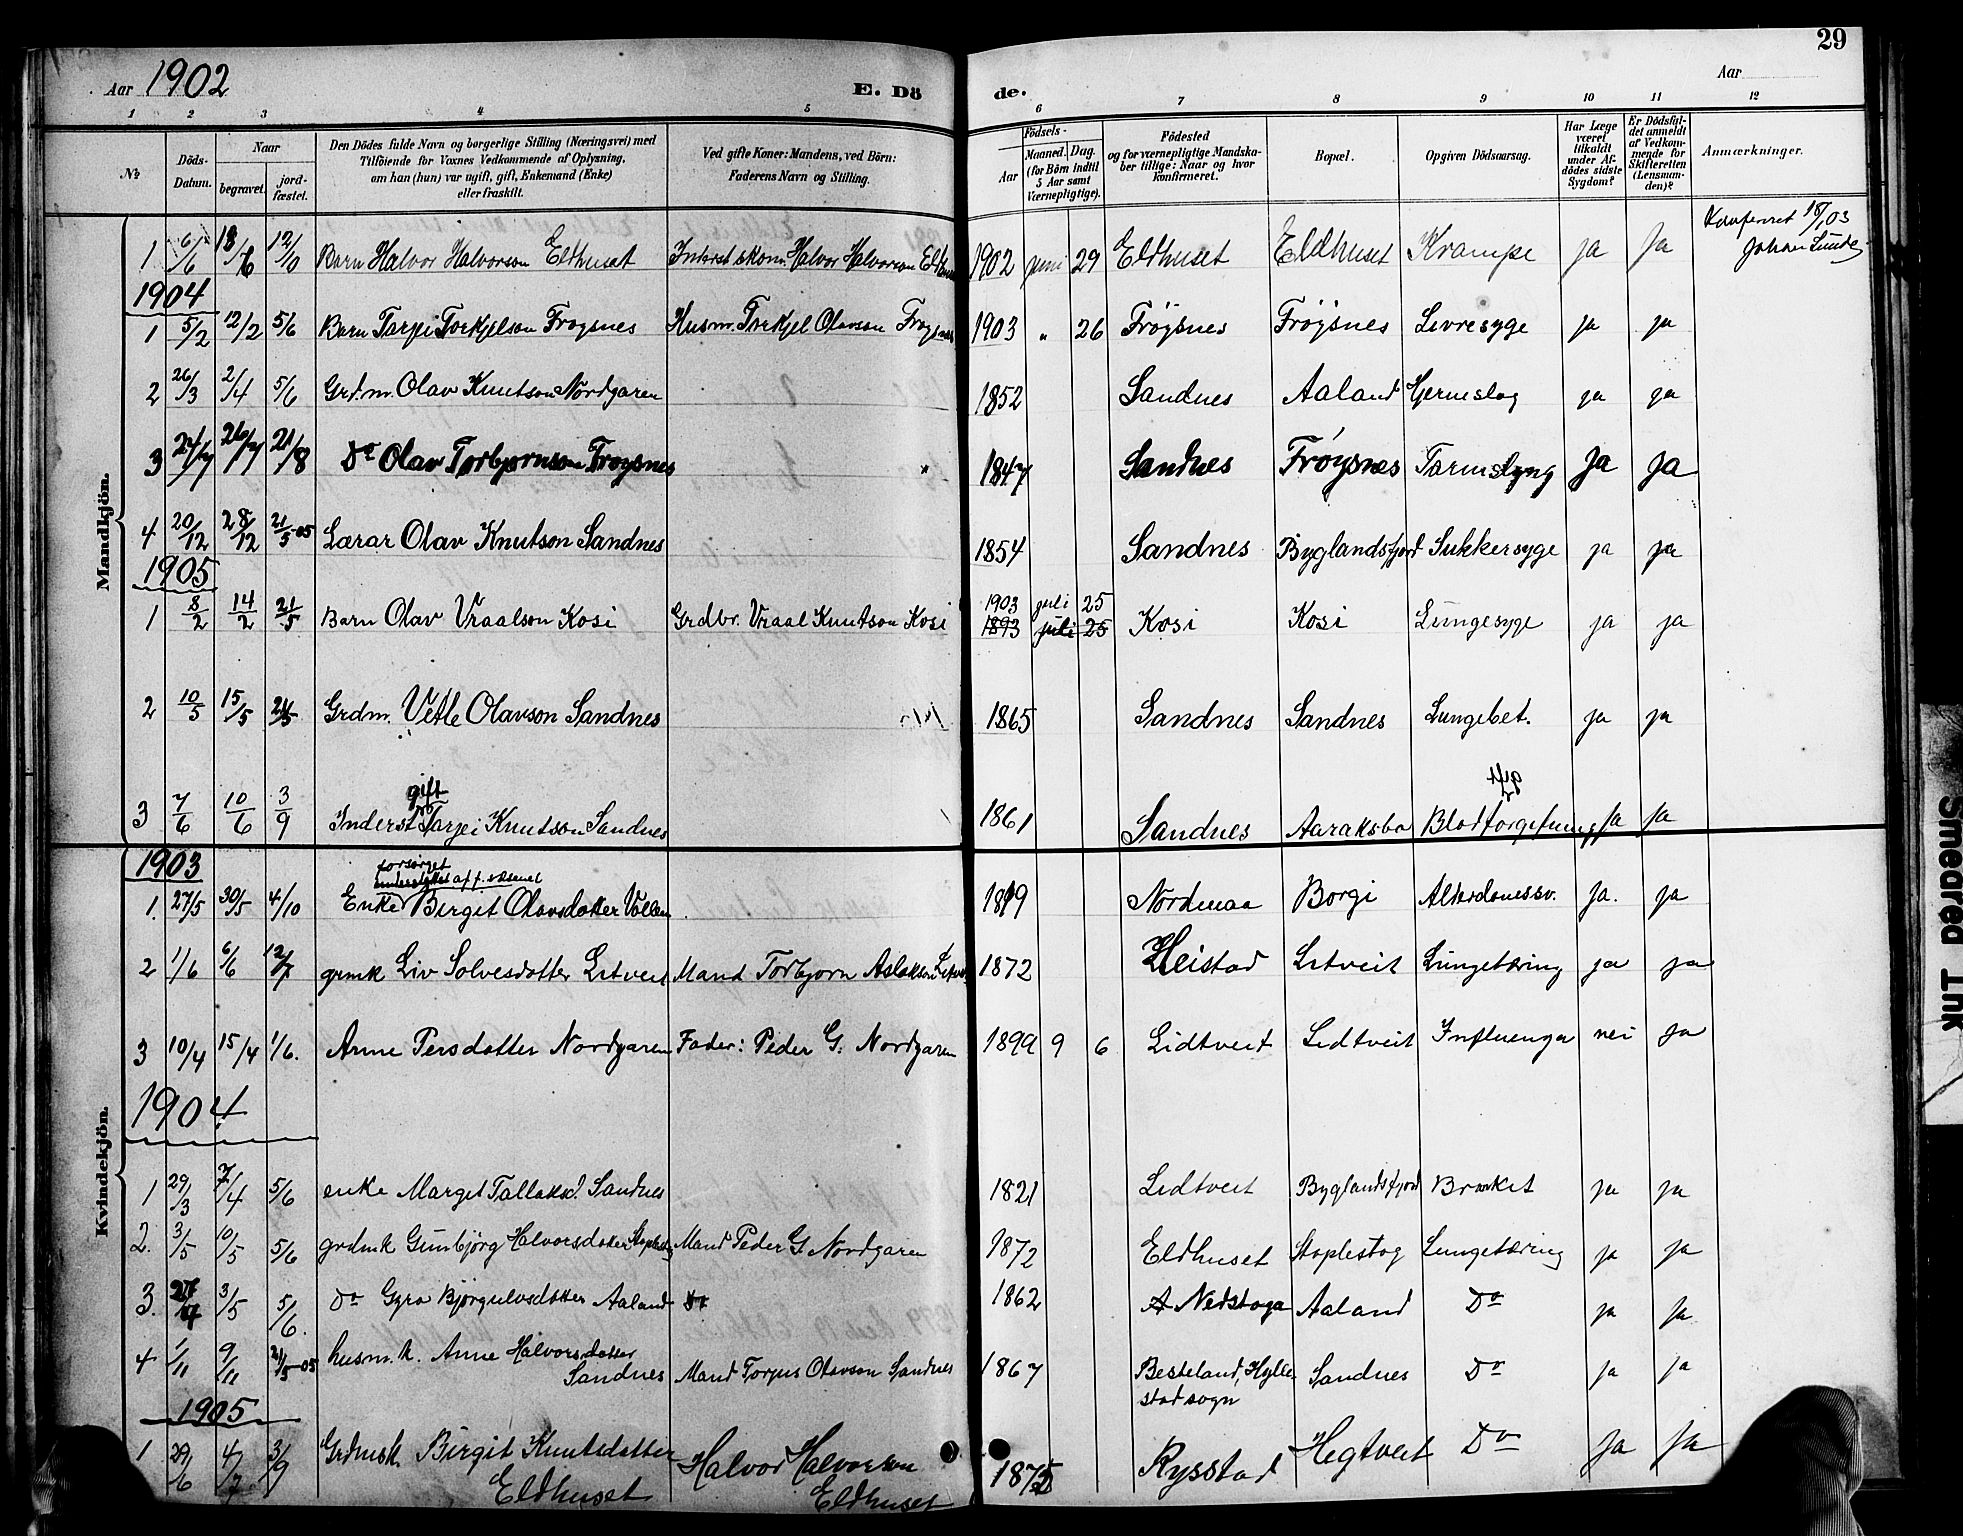 29
Aar 1902
E. Dö
de.
Aar
1 2 3 4 5 6 7 8 9 10 11 12
№
Döds-
Datum.
Naar
begravet.
jord-
fæstet.
Den Dödes fulde Navn og borgerlige Stilling (Næringsvei) med
Tilföiende for Voxnes Vedkommende af Oplysning,
om han (hun) var ugift, gift, Enkemand (Enke)
eller fraskilt.
Ved gifte Koner: Mandens, ved Börn:
Faderens Navn og Stilling.
Födsels-
Aar
Maaned. Dag.
(for Börn indtil
5 Aar samt
Værnepligtige).
Födested
og for værnepligtige Mandska-
ber tillige: Naar og hvor
konfirmeret.
Bopæl.
Opgiven Dödsaarsag.
Har Læge
været
tilkaldt
under Af-
dödes sidste
Sygdom?
Er Dödsfal-
det anmeldt
af Vedkom-
mende for
Skifteretten
(Lensman-
den)?
Anmærkninger.
Mandkjön.
1 6/6 18/6 12/10 Barn Halvor Halvorson Eldhuset Inderst skom. Halvor Halvorson 1902 juni 29 Eldhuset Eldhuset Krampe ja ja Konferert 18/7 03
Johan Lunde
1904
1 5/2 12/2 5/6 Barn Tarjei Torkjelson Froysnes Husm. Torkjel Olavson Froysnes 1903 " 26 Frøysnes Frøysnes Levresyge ja ja
2 26/3 2/4 5/6 Grd.m. Olav Knutson Nordgaren 1852 Sandnes Aaland Hjerneslag ja ja
3 24/7 26/7 21/8 Do Olav Torbjørnson Froysnes " 1847 Sandnes Frøysnes Tarmslyng ja ja
4 20/12 28/12 21/5-05 Lærar Olav Knutson Sandnes 1854 Sandnes Byglandsfjord Sukkersyge ja ja
1905
1903 juli 25
1 8/2 14/2 21/5 Barn Olav Vraalson Kosi Grdbr. Vraal Knutson Kosi 1893 juli 25 Kosi Kosi Lungesyge ja ja
2 10/5 15/5 21/5 Grdm. Vetle Olavson Sandnes 1865 Sandnes Sandnes Lungebet. ja ja
gift
3 7/6 10/6 3/9 Inderst Tarjei Knutson Sandnes 1861 Sandnes Aaraksbo Blodforgiftning ja ja
Kvindekjön.
1903
forsørget
understøttet af f. væsenet
1. 27/5 30/5 4/10 Enke Birgit Olavsdotter Vollen 1819 Nordmaa Borgi Alderdomssv. ja. ja
2 1/6 6/6 grmk Liv Solvesdotter Litveit Mand Torbjorn Aslakson 1872 Heistad Litveit Lungetæring ja ja
3 10/4 15/4 1/6. Anne Persdotter Nordgaren Fader: Peder G. Nordgaren 1899 9 6 Lidtveit Lidtveit Influenza nei ja
1904
1 29/3 7/4 5/6 enke Marget Tallaksd. Sandnes 1821 Lidtveit Byglandsfjord Bræket ja ja
2. 3/5 10/5 5/6 grdmk Gunbjørg Halvorsdotter Mand Peder G. Nordgaren 1872 Eldhuset Staplestog Lungetæring ja ja
3. 27/4 3/5 5/6. Do Gyro Bjørgulvsdotter Aaland Do 1862 A Nedstoga Aaland Do ja ja
4 1/11 9/11 21/5-05 husm. k. Anne Halvorsdotter
Sandnes Mand Torjus Olavson Sandnes 1867 Besteland, Hylle-
stad sogn Sandnes Do ja ja
1905
1 4/7 3/9 Grdmsk. Birgit Knutsdotter
Eldhuset Halvor Halvorson
Eldhuset 1875 Rysstad Hegtveit Do ja ja
Smeared Ink